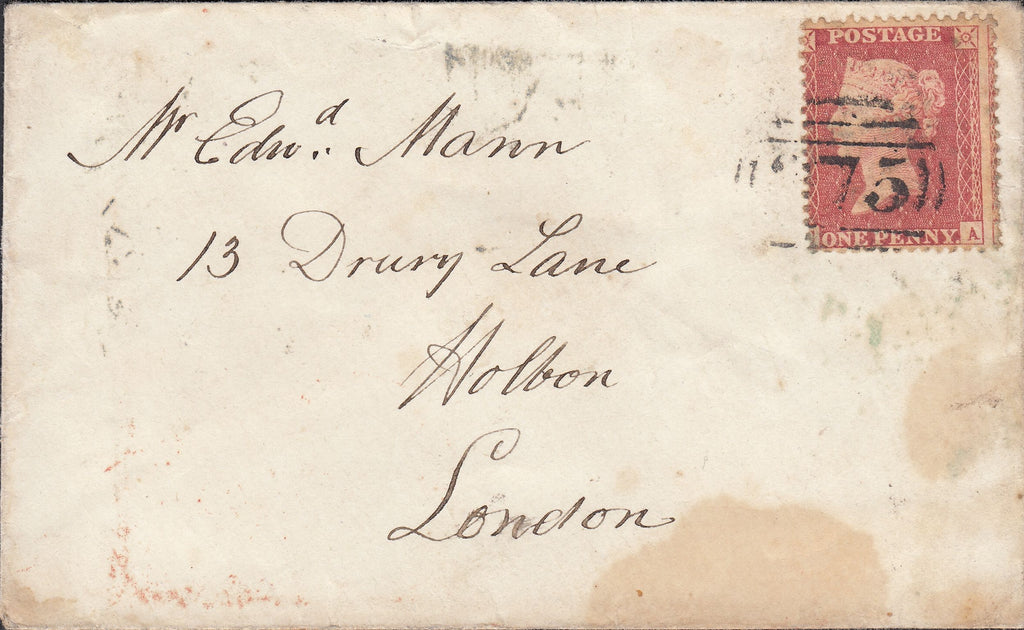 POSTAGE
Mr Edwd. Mann
75
ONE PENNY.
A
13 Drury Lane
Holbon
London